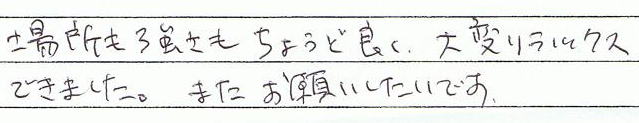 場所も強さもちょうど良く、大変リラックス
できました。またお願いしたいです。